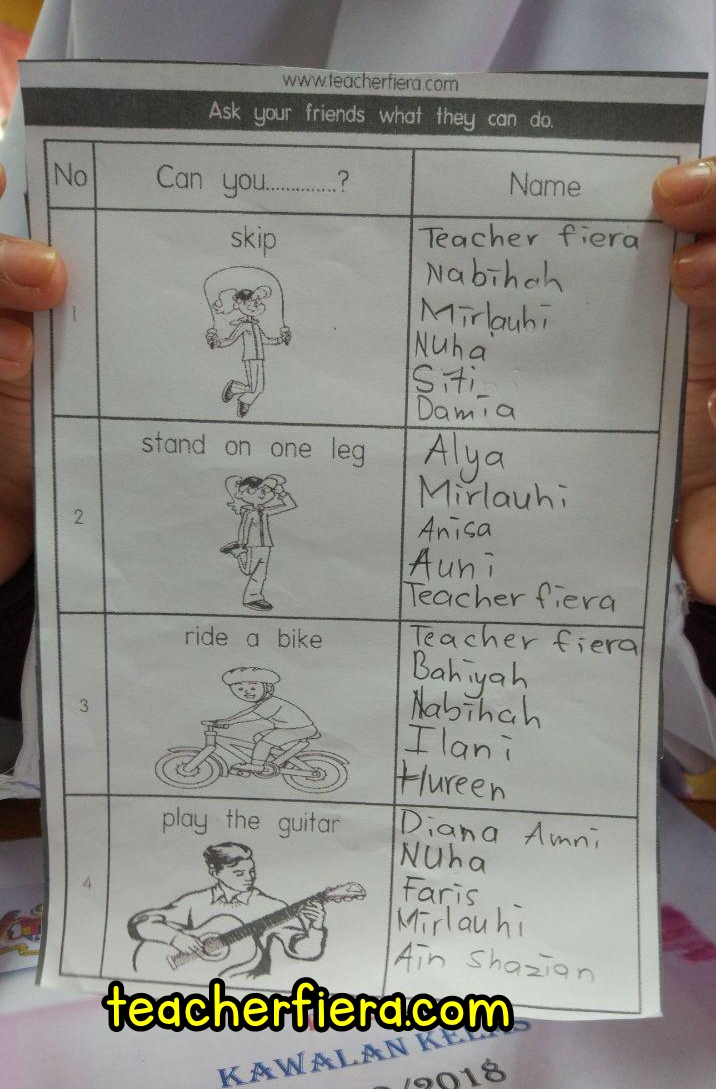 www.teacherfiera.com
Ask your friends what they can do.
No
Can you..............?
Name
1
skip
Teacher fiera
Nabihah
Mirlauhi
Nuha
Siti
Damia
2
stand on one leg
Alya
Mirlauhi
Anisa
Auni
Teacher fiera
3
ride a bike
Teacher fiera
Bahiyah
Nabihah
Ilani
Hureen
4
play the guitar
Diana Amni
Nuha
Faris
Mirlauhi
Ain Shazian
teacherfiera.com
KAWALAN KELAS
/2018